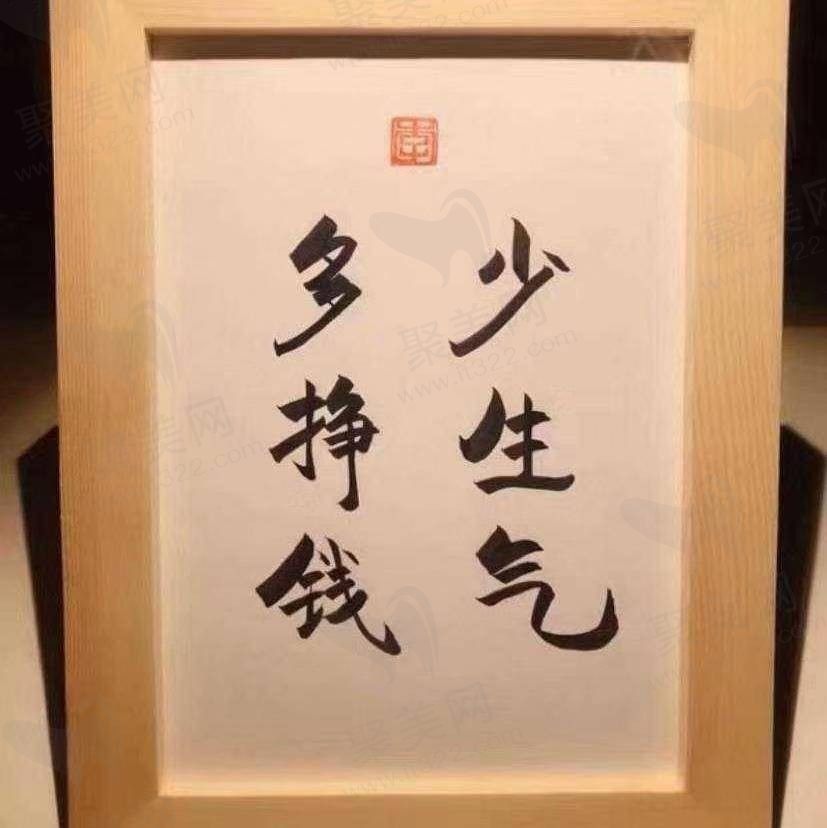 少生气
多挣钱
聚美网
www.lt322.com